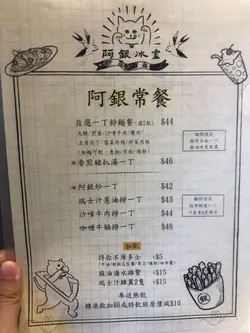 阿銀冰室
阿銀常餐
自選一丁粉麵餐(選2款) $44
火腿/煎蛋/沙嗲牛肉/餐肉/
五香肉丁/雪菜肉絲/榨菜肉絲
香煎豬扒湯一丁 $46
阿銀炒一丁 $42
瑞士汁蔥油撈一丁 $43
沙嗲牛肉撈一丁 $46
咖喱牛腩撈一丁 $46
加配
待你不薄多士 +$5
麻油滷水雞髀 +$15
瑞士汁雞翼2隻 +$15
奉送熱飲
轉凍飲加$5或特飲照原價減$10